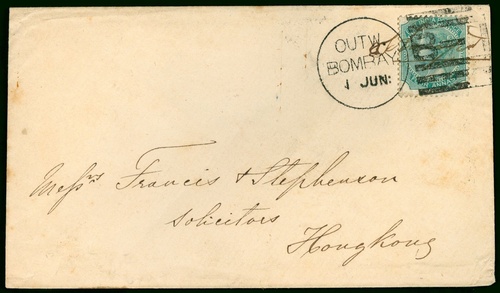 OUTW
BOMBAY
1 JUN:
Messrs Francis & Stephenson
Solicitors
Hongkong